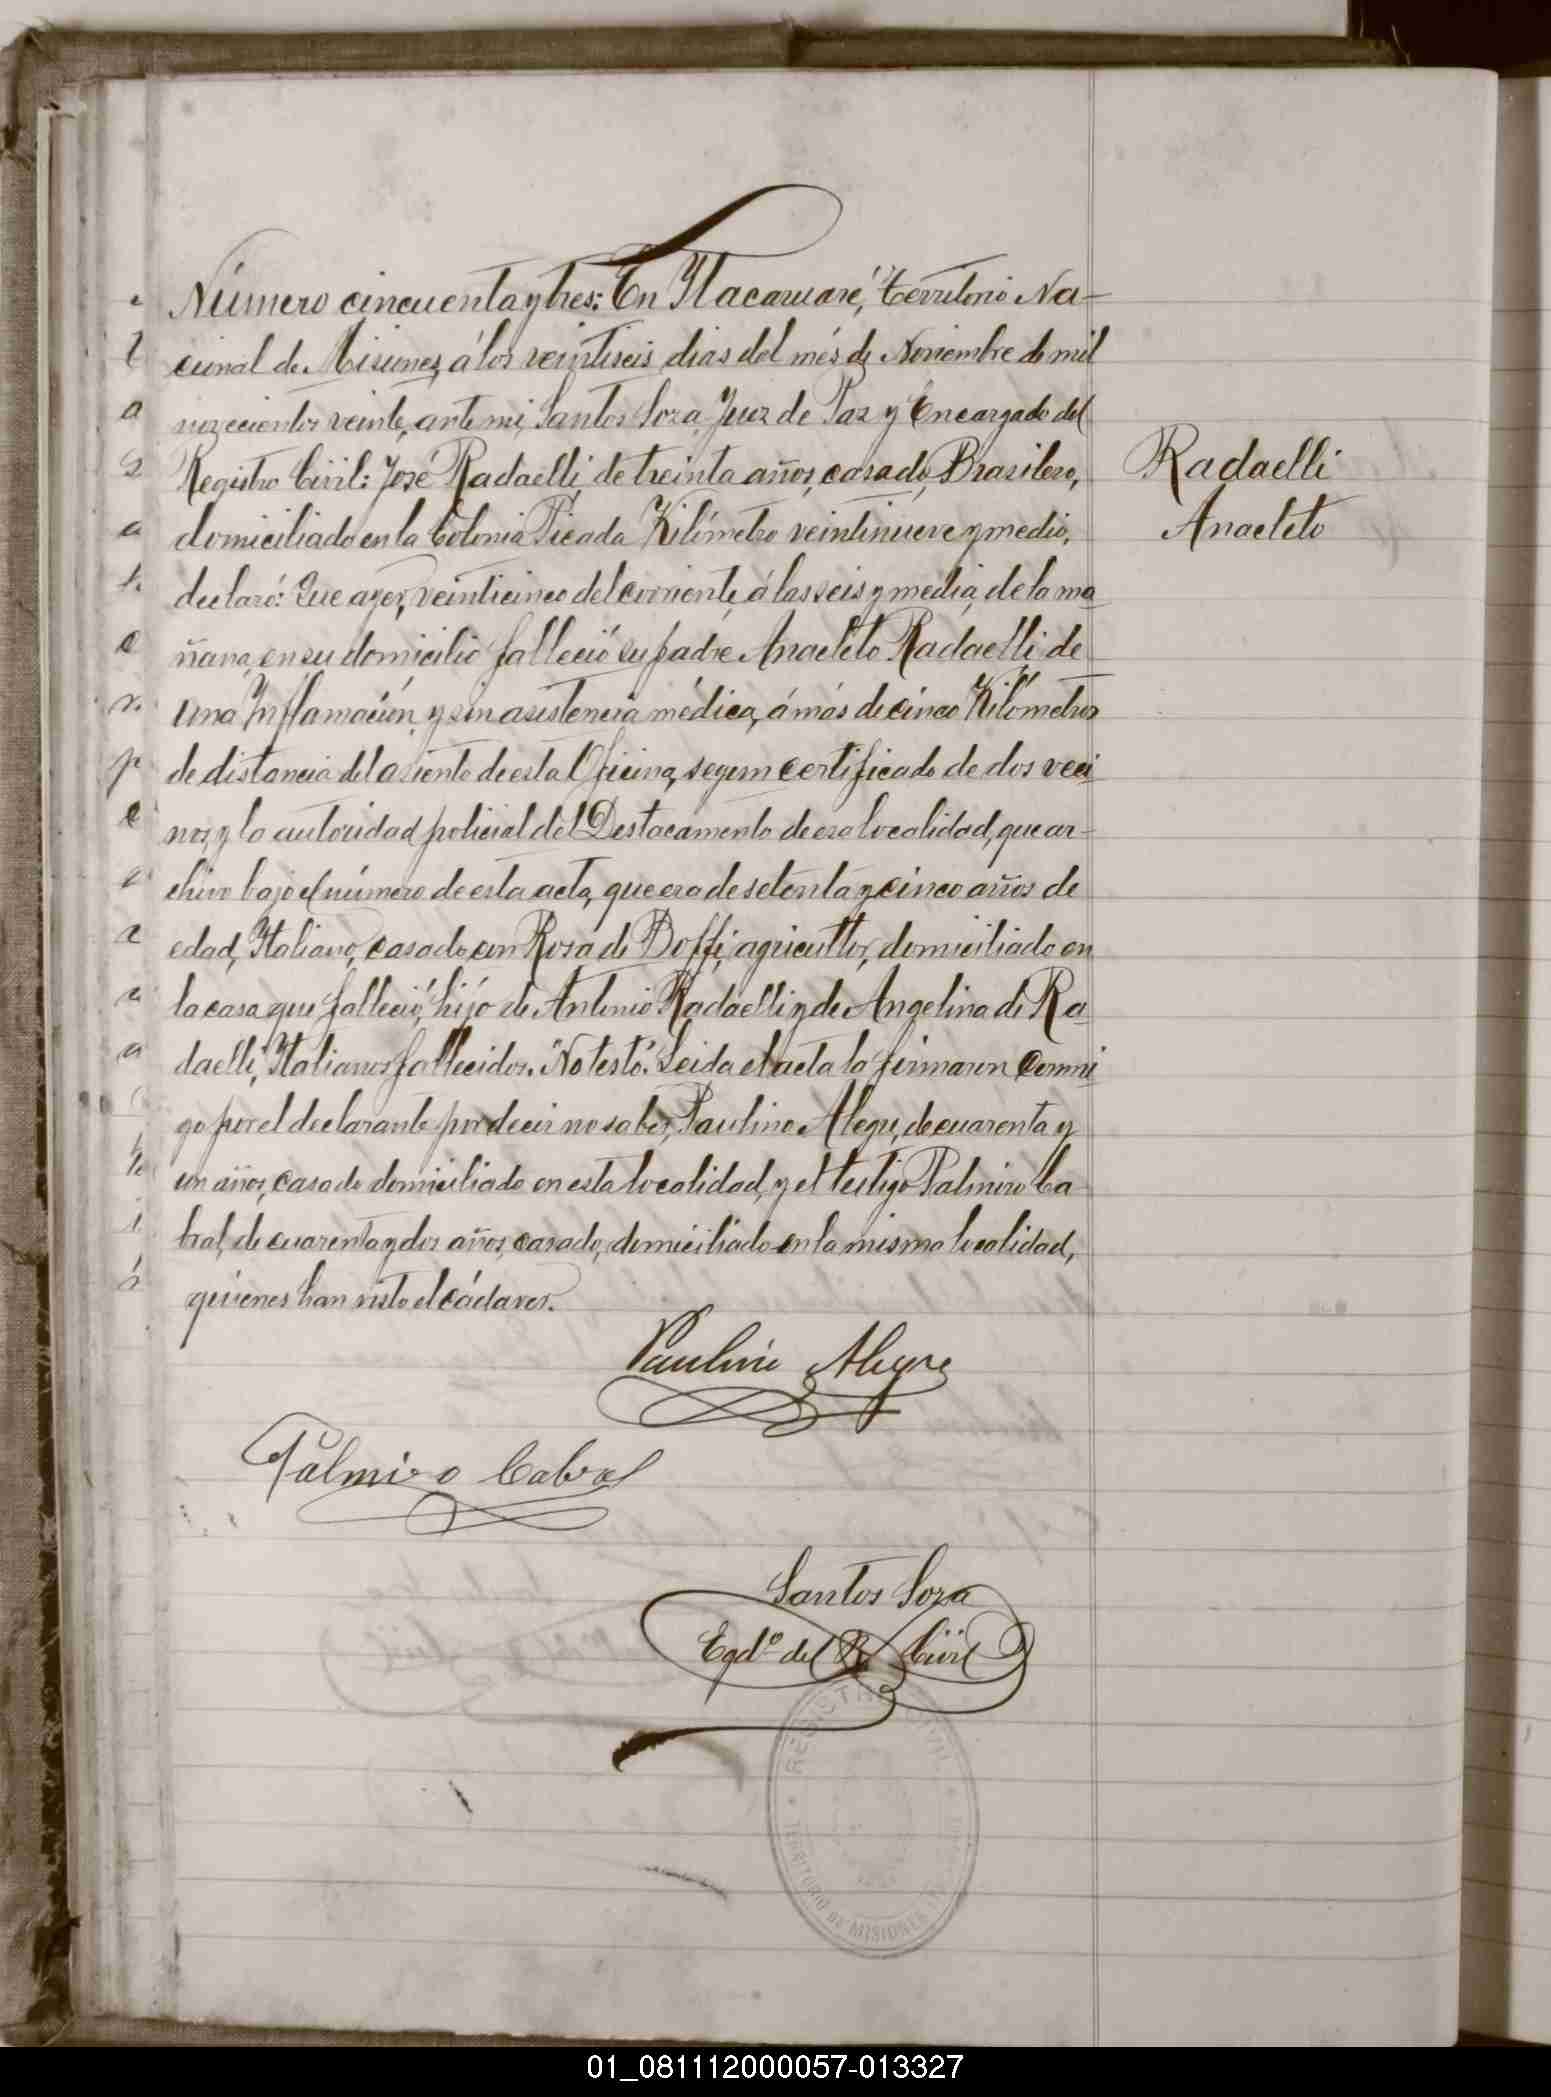 Número cincuenta y tres: En Itacaruaré, territorio Na-
cional de Misiones, á los veintiseis dias del més de Noviembre de mil
novecientos veinte, ante mi, Santos Soza, Juez de Paz y Encargado del
Registro Civil: José Radaelli, de treinta años, casado, Brasilero,
domiciliado en la Colonia Picada Kilómetro veintinueve y medio,
declaró: Que ayer, veinticinco del corriente, á las seis y media, de la ma
ñana, en su domicilio falleció su padre Anacleto Radaelli de
una Inflamación, y sin asistencia médica, á más de cinco Kilómetros
de distancia del asiento de esta Oficina, segun certificado de dos veci
nos, y la autoridad policial del Destacamento de esa localidad, que ar-
chivo bajo el número de esta acta, que era de setenta y cinco años de
edad, Italiano, casado con Rosa de Boffi, agricultor, domiciliado en
la casa que falleció, hijo de Antonio Radaelli y de Angelina de Ra-
daelli, Italianos fallecidos. No testó. Leida el acta la firmaron conmi
go por el declarante por decir no saber, Paulino Alegre, de cuarenta y
un años, casado domiciliado en esta localidad, y el testigo Palmiro Ca-
bral, de cuarenta y dos años, casado, domiciliado en la misma localidad,
quienes han visto el cádaver.
Radaelli
Anacleto
Paulino Alegre
Palmiro Cabral
Santos Soza
Egdº del R. Civil
REGISTRO CIVIL
TERRITORIO DE MISIONES
01_081112000057-013327